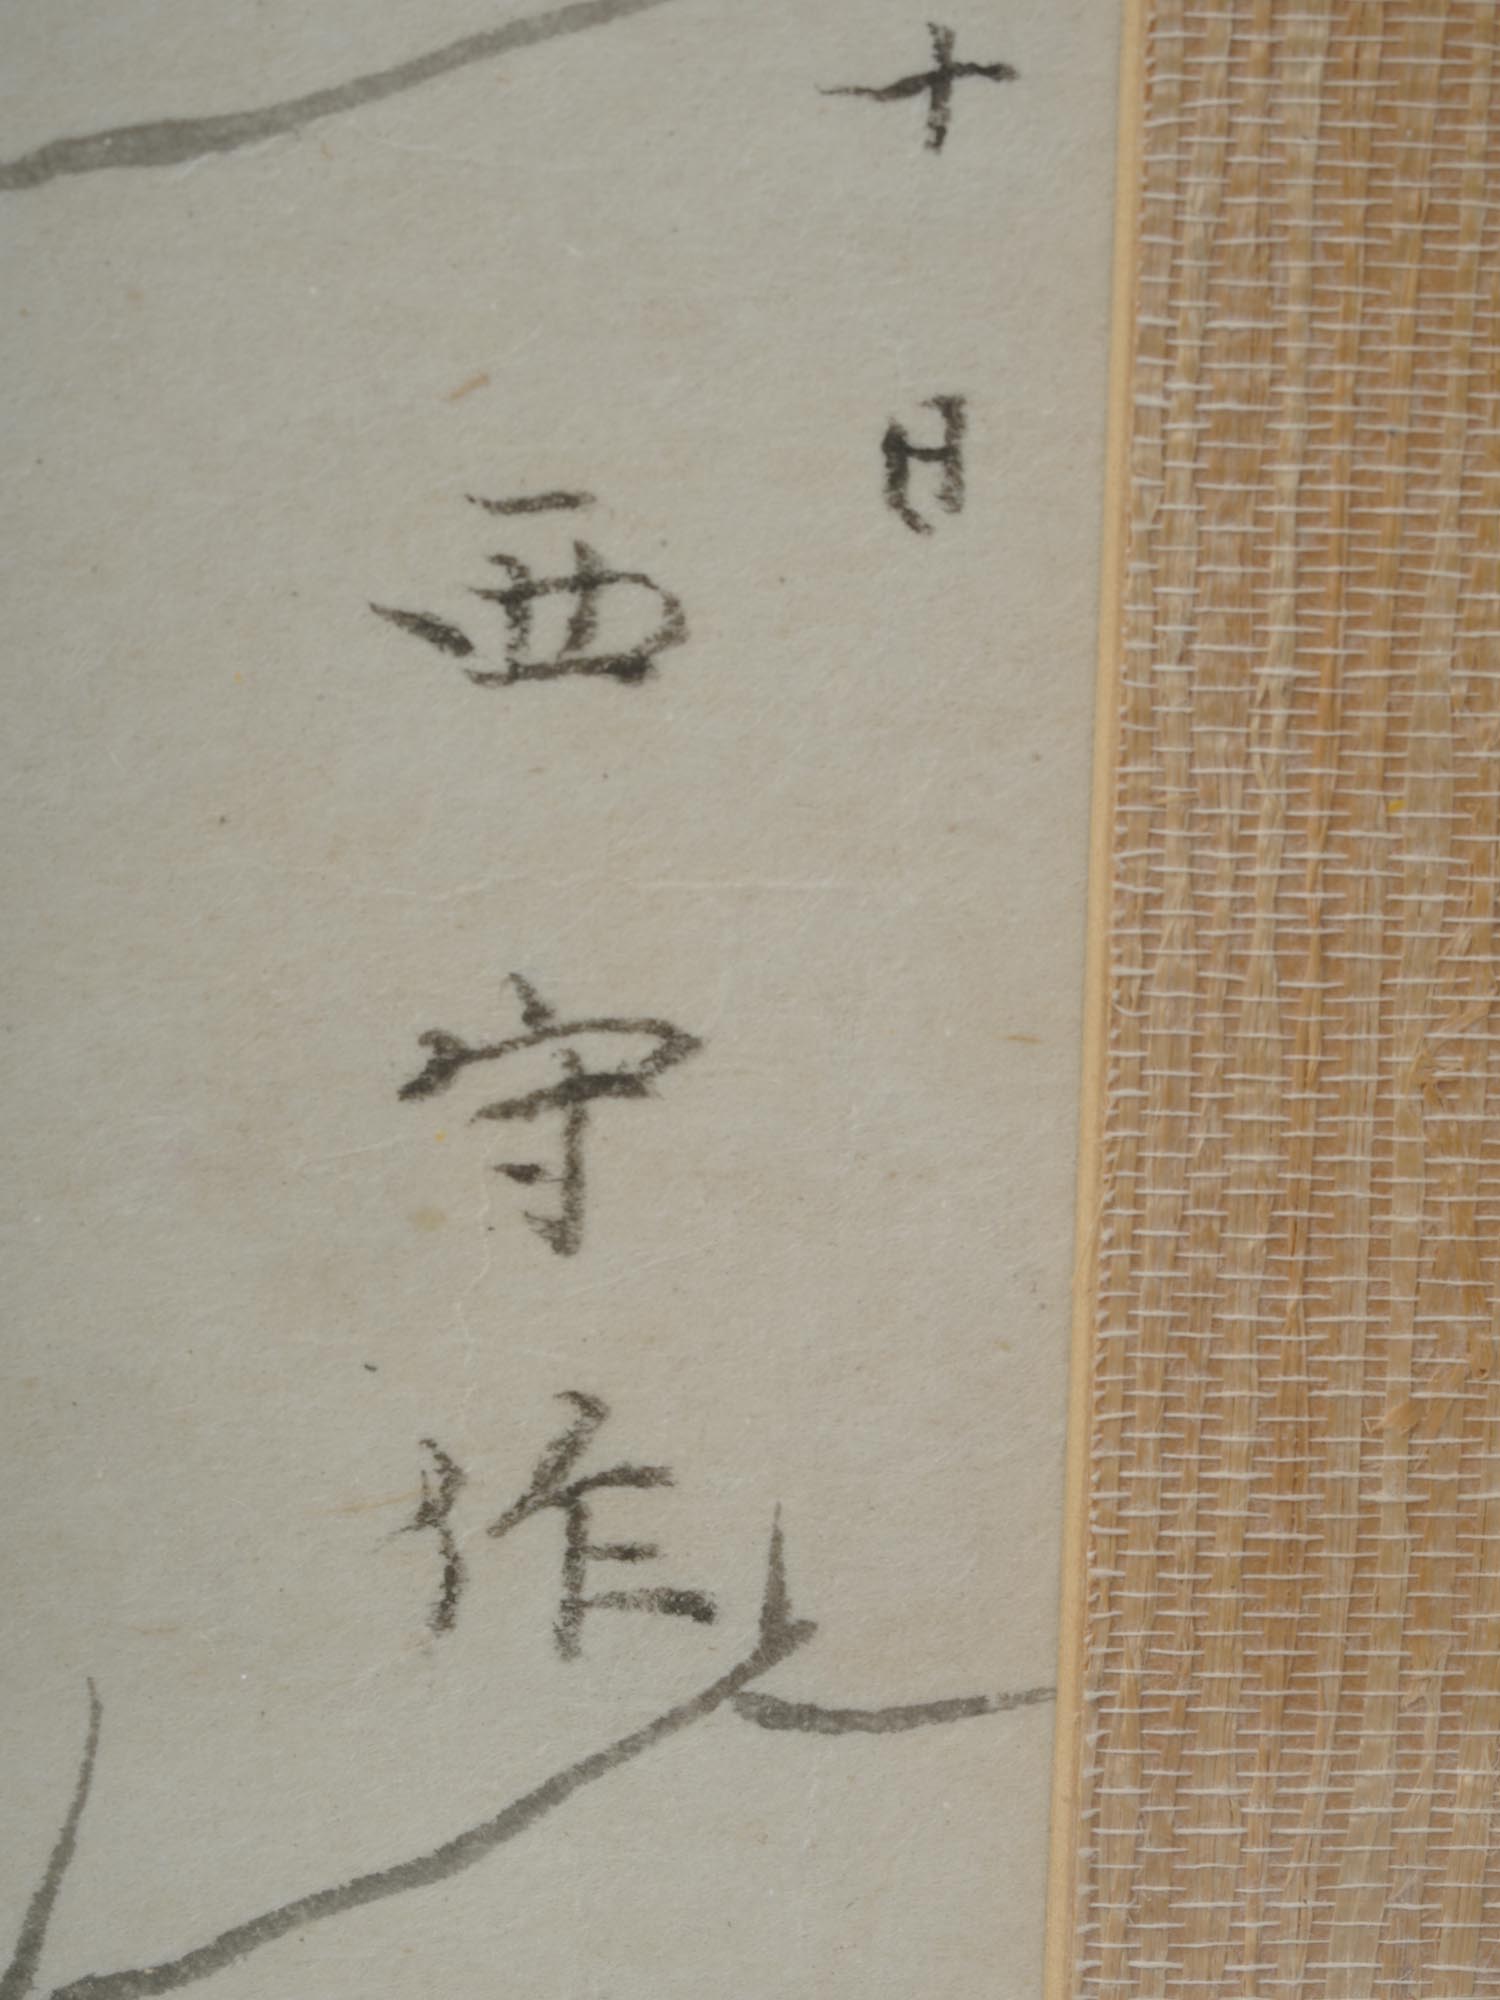 十日
西守作